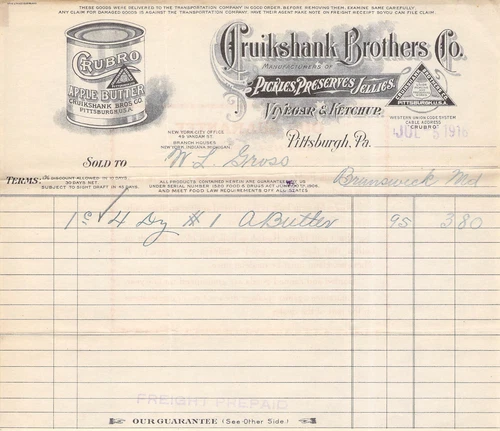 THESE GOODS WERE DELIVERED TO THE TRANSPORTATION COMPANY IN GOOD ORDER. BEFORE REMOVING THEM, EXAMINE SAME CAREFULLY.
ANY CLAIM FOR DAMAGED GOODS IS AGAINST THE TRANSPORTATION COMPANY. HAVE THEIR AGENT MAKE NOTE ON FREIGHT RECEIPT SO YOU CAN FILE CLAIM.
CRUBRO
APPLE BUTTER
CRUIKSHANK BROS CO.
PITTSBURGH, U.S.A.
Cruikshank Brothers Co.
MANUFACTURERS OF
PICKLES, PRESERVES, JELLIES,
VINEGAR & KETCHUP.
PITTSBURGH, U.S.A.
NEW YORK CITY OFFICE
49 VANDAM ST.
BRANCH HOUSES
NEW YORK, INDIANA, MICHIGAN.
Pittsburgh, Pa.
WESTERN UNION CODE SYSTEM
CABLE ADDRESS
"CRUBRO"
1918
SOLD TO W L Gross
TERMS: 1% DISCOUNT ALLOWED IN 10 DAYS
30 DAYS NET
SUBJECT TO SIGHT DRAFT IN 45 DAYS.
ALL PRODUCTS CONTAINED HEREIN ARE GUARANTEED BY US
UNDER SERIAL NUMBER 1520 FOOD & DRUGS ACT 1906,
AND MEET FOOD LAW REQUIREMENTS OF ALL STATES
Brunswick Md
1 cs 4 Dz #1 A Butter 95 3.80
FREIGHT PREPAID
OUR GUARANTEE (See Other Side.)